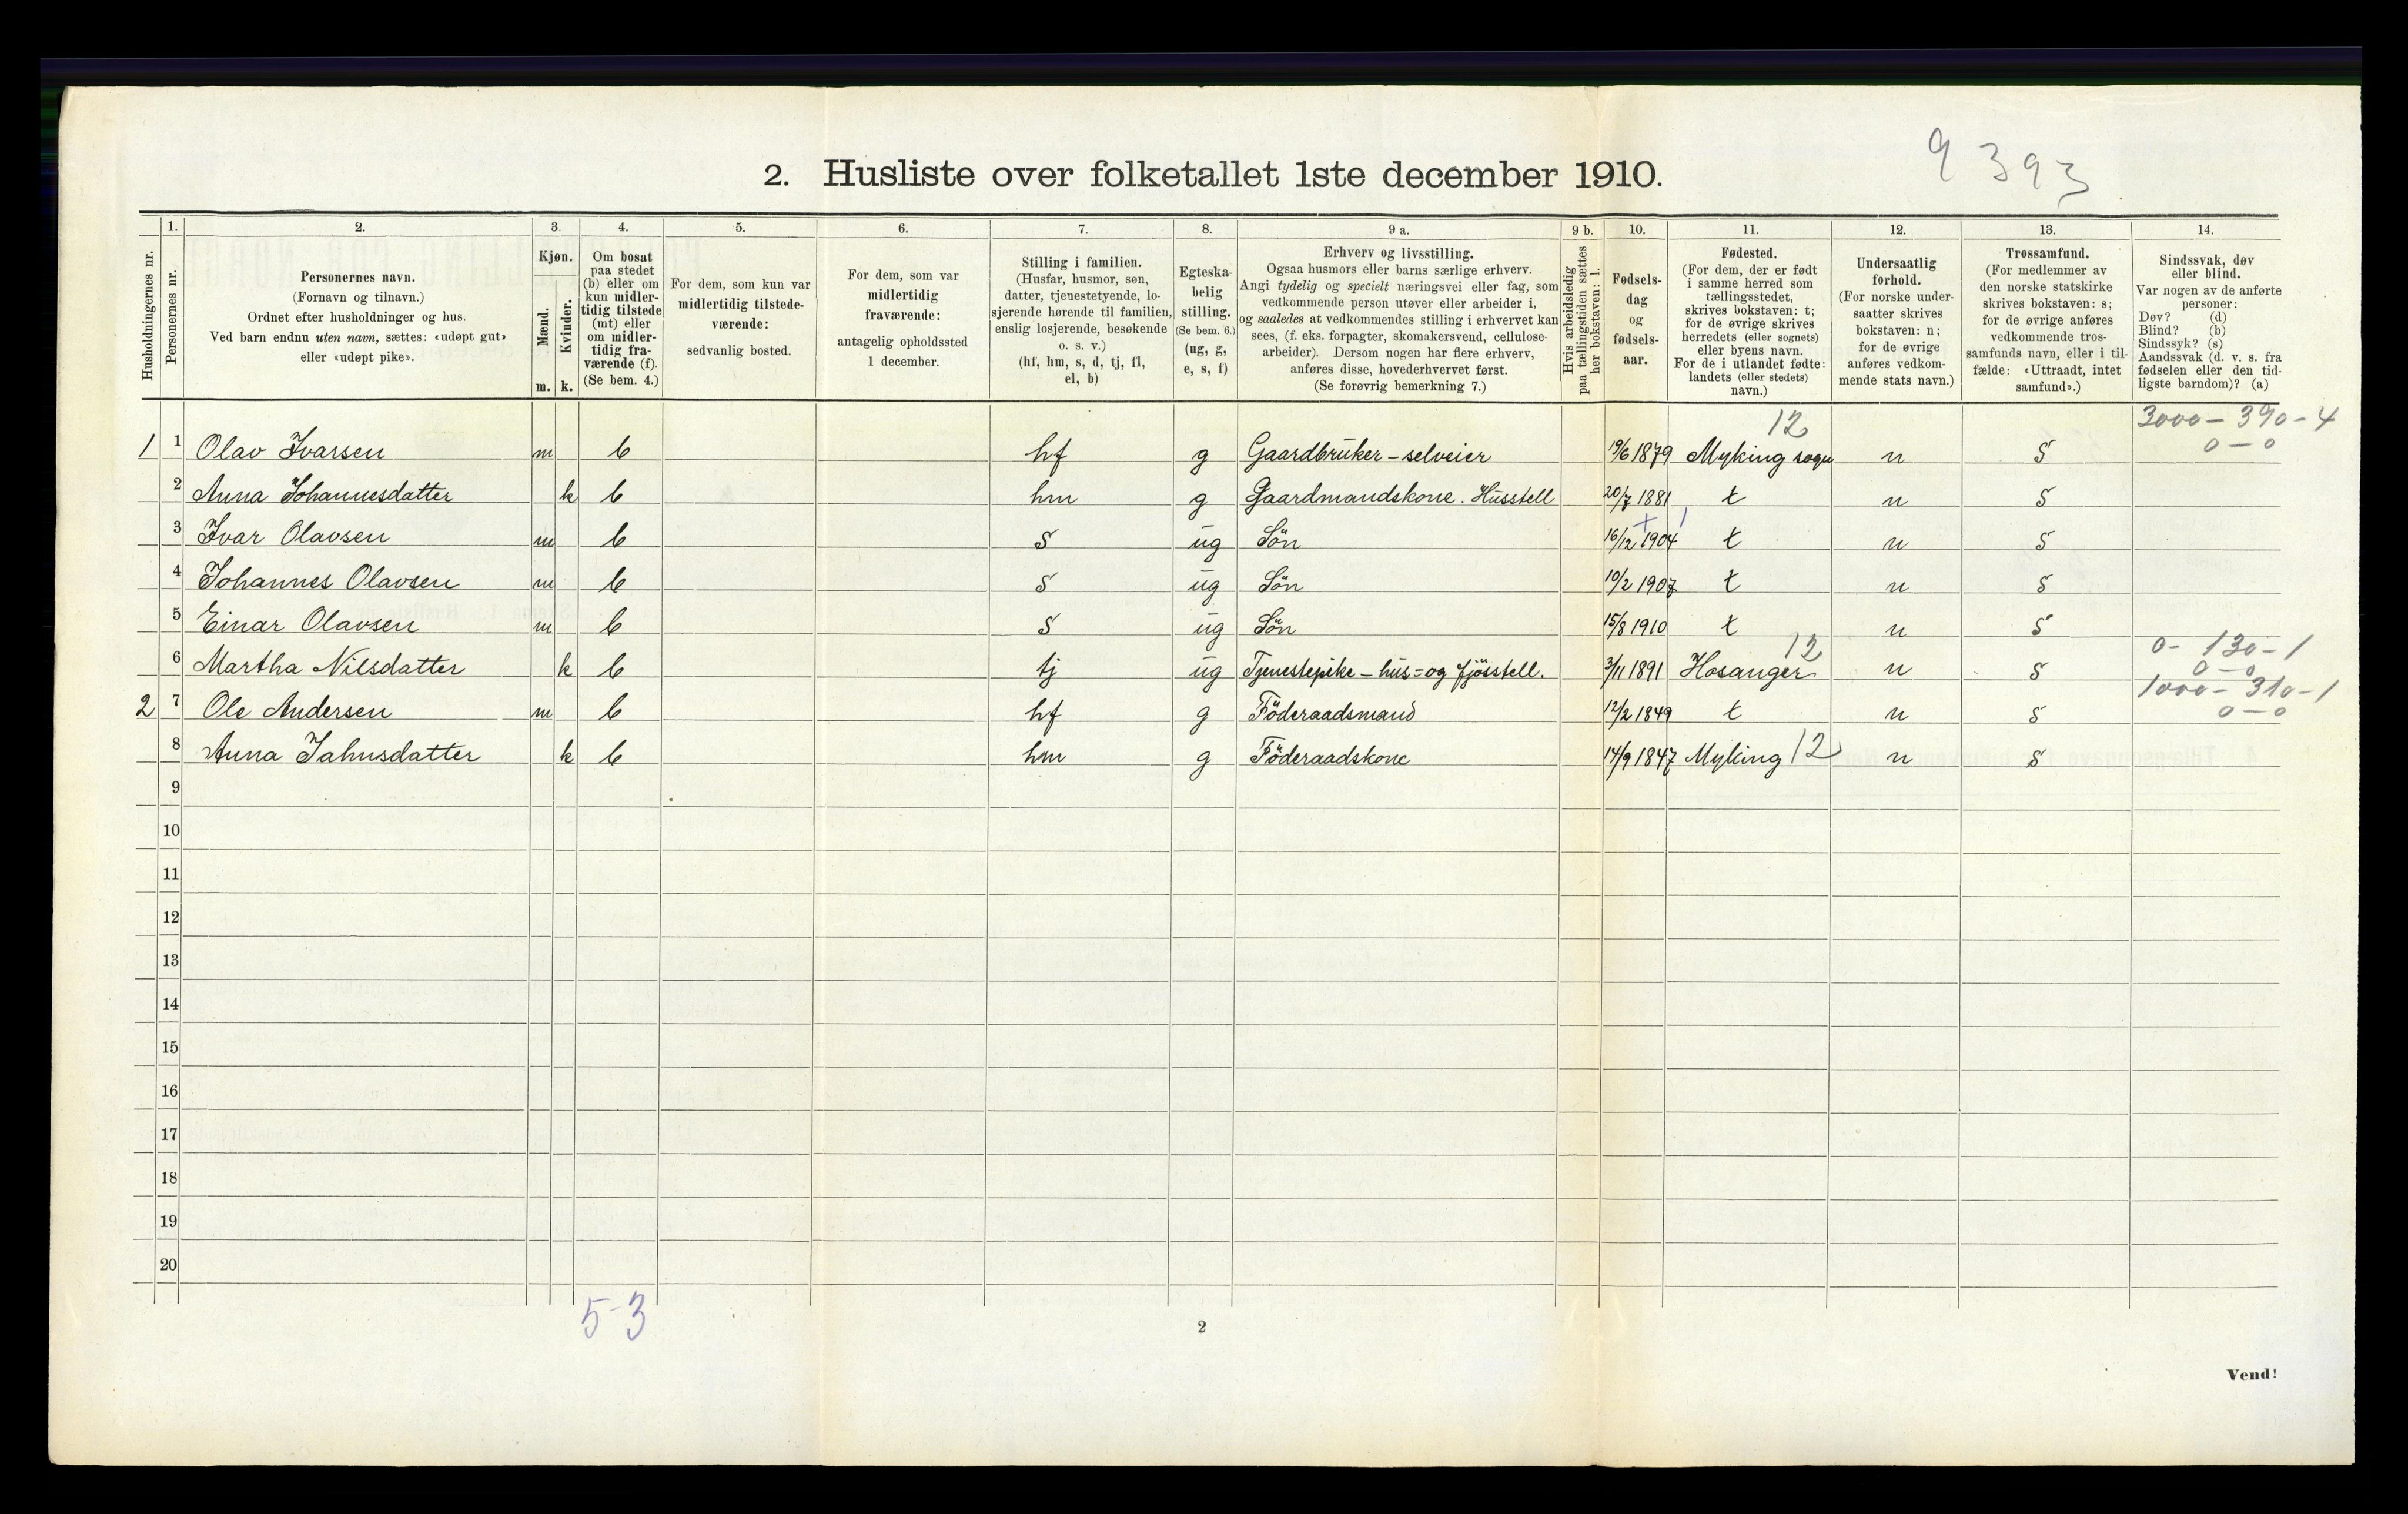 9 393
2. Husliste over folketallet 1ste december 1910.
Husholdningernes nr.
1.
Personernes nr.
2.
Personernes navn.
(Fornavn og tilnavn.)
Ordnet efter husholdninger og hus.
Ved barn endnu uten navn, sættes: «udøpt gut»
eller «udøpt pike».
3.
Kjøn.
Mænd.
Kvinder.
m. k.
4.
Om bosat
paa stedet
(b) eller om
kun midler-
tidig tilstede
(mt) eller
om midler-
tidig fra-
værende (f).
(Se bem. 4.)
5.
For dem, som kun var
midlertidig tilstede-
værende:
sedvanlig bosted.
6.
For dem, som var
midlertidig
fraværende:
antagelig opholdssted
1 december.
7.
Stilling i familien.
(Husfar, husmor, søn,
datter, tjenestetyende, lo-
sjerende hørende til familien,
enslig losjerende, besøkende
o. s. v.)
(hf, hm, s, d, tj, fl,
el, b)
8.
Egteska-
belig
stilling.
(Se bem. 6.)
(ug, g,
e, s, f)
9 a.
Erhverv og livsstilling.
Ogsaa husmors eller barns særlige erhverv.
Angi tydelig og specielt næringsvei eller fag, som
vedkommende person utøver eller arbeider i,
og saaledes at vedkommendes stilling i erhvervet kan
sees, (f. eks. forpagter, skomakersvend, cellulose-
arbeider). Dersom nogen har flere erhverv,
anføres disse, hovederhvervet først.
(Se forøvrig bemerkning 7.)
9 b.
Hvis arbeidsledig
paa tællingstiden sættes
her bokstaven: l.
10.
Fødsels-
dag
og
fødsels-
aar.
11.
Fødested.
(For dem, der er født
i samme herred som
tællingsstedet,
skrives bokstaven: t;
for de øvrige skrives
herredets (eller sognets)
eller byens navn.
For de i utlandet fødte:
landets (eller stedets)
navn.)
12.
Undersaatlig
forhold.
(For norske under-
saatter skrives
bokstaven: n;
for de øvrige
anføres vedkom-
mende stats navn.)
13.
Trossamfund.
(For medlemmer av
den norske statskirke
skrives bokstaven: s;
for de øvrige anføres
vedkommende tros-
samfunds navn, eller i til-
fælde: «Uttraadt, intet
samfund».)
14.
Sindssvak, døv
eller blind.
Var nogen av de anførte
personer:
Døv? (d)
Blind? (b)
Sindssyk? (s)
Aandssvak (d. v. s. fra
fødselen eller den tid-
ligste barndom)? (a)
12 3000 – 390 – 4
0 – 0
1 1 Olav Ivarsen m b hf g Gaardbruker – selveier 19/6 1879 Myking sogn n s
2 Anna Johannesdatter k b hm g Gaardmandskone. Husstell 20/7 1881 t n s
3 Ivar Olavsen m b s ug Sön 16/12 1904 t n s
4 Johannes Olavsen m b s ug Sön 10/2 1907 t n s
5 Einar Olavsen m b s ug Sön 15/8 1910 t n s
12 0 – 130 – 1
0 – 0
6 Martha Nilsdatter k b tj ug Tjenestepike – hus= og fjösstell. 3/11 1891 Hosanger n s
1000 – 310 – 1
0 – 0
2 7 Ole Andersen m b hf g Föderaadsmand 12/2 1849 t n s
8 Anna Jahnsdatter k b hm g Föderaadskone 14/9 1847 Myking 12 n s
9
10
11
12
13
14
15
16
17
18
19
20
5-3
2
Vend!